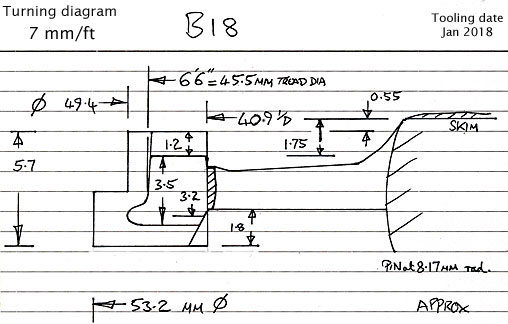 Turning diagram
7 mm/ft
B18
Tooling date
Jan 2018
6'6" = 45.5MM TREAD DIA
Ø 49.4
40.9 I/D
0.55
SKIM
1.2
1.75
5.7
3.5
3.2
1.8
PIN at 8.17MM rad.
53.2 MM Ø
APPROX